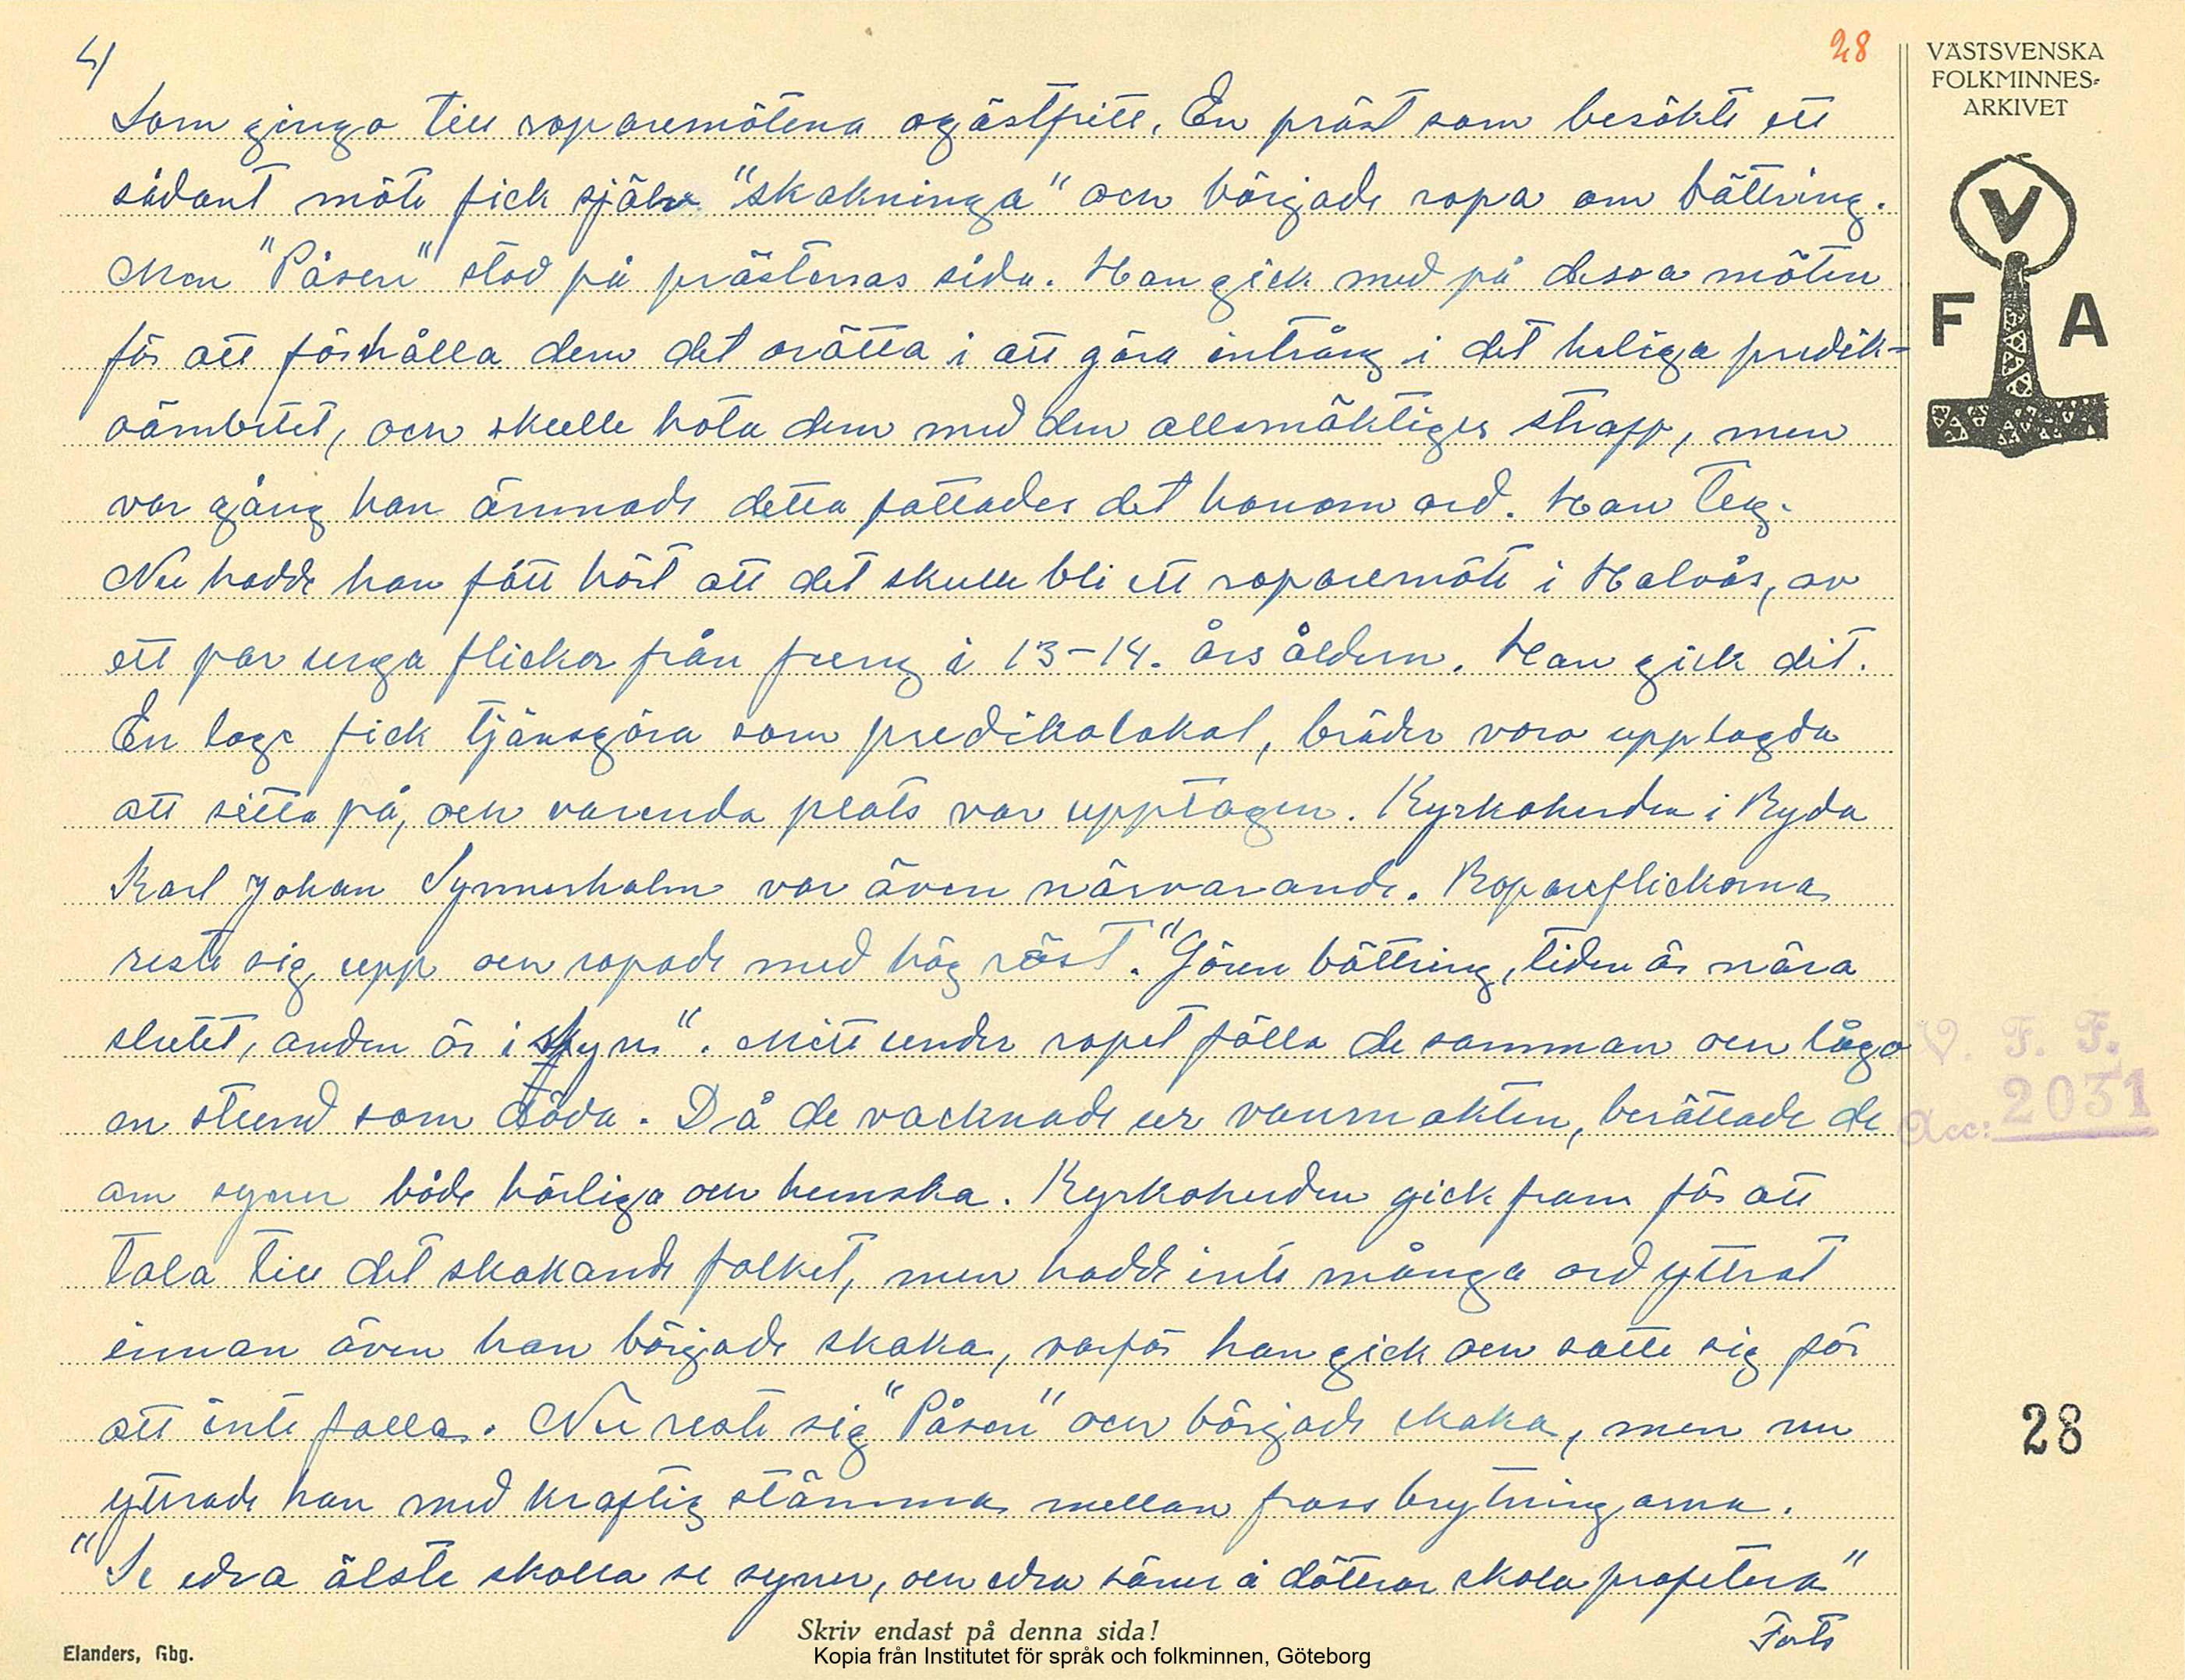 4/
28
VÄSTSVENSKA
FOLKMINNES-
ARKIVET
V
F A
Som gingo till roparemötena ogästfritt. En präst som besökte ett
sådant möte fick själv "skakninga" och började ropa om bättring.
Men "Påsen" stod på prästernas sida. Han gick med på dessa möten
för att förhålla dem det orätta i att göra intrång i det heliga predik-
oämbetet, och skulle hota dem med den allsmäktiges straff, men
var gång han ämnade detta fattades det honom ord. Han teg.
Nu hadde han fått hört att det skulle bli ett roparemöte i Halvås, av
ett par unga flickor från freng i 13-14. års åldern. Han gick dit.
En loge fick tjänsgöra som predikolokal, bräder voro upplagda
att sitta på, och varenda plats var upptagen. Kyrkoherden i Ryda
Karl Johan Synnerholm var även närvarande. Roparflickorna
reste sig upp och ropade med hög röst. "Gören bättring, tiden är nära
slutet, anden är i skyn". Mitt under ropet fölla de samman och lågo
en stund som döda. Då de vacknade ur vanmakten, berättade de
om syner både härliga och hemska. Kyrkoherden gick fram för att
tala till det skakande folket, men hadde inte många ord yttrat
innan även han började skaka, varför han gick och satte sig för
att inte falla. Nu reste sig "Påsen" och började skaka, men nu
yttrade han med kraftig stämma mellan frassbrytningarna.
"Se edra älste skalla se syner, och edra söner å döttrar skola profetera"
Forts
V. F. F.
Acc: 2031
28
Skriv endast på denna sida!
Elanders, Gbg.
Kopia från Institutet för språk och folkminnen, Göteborg